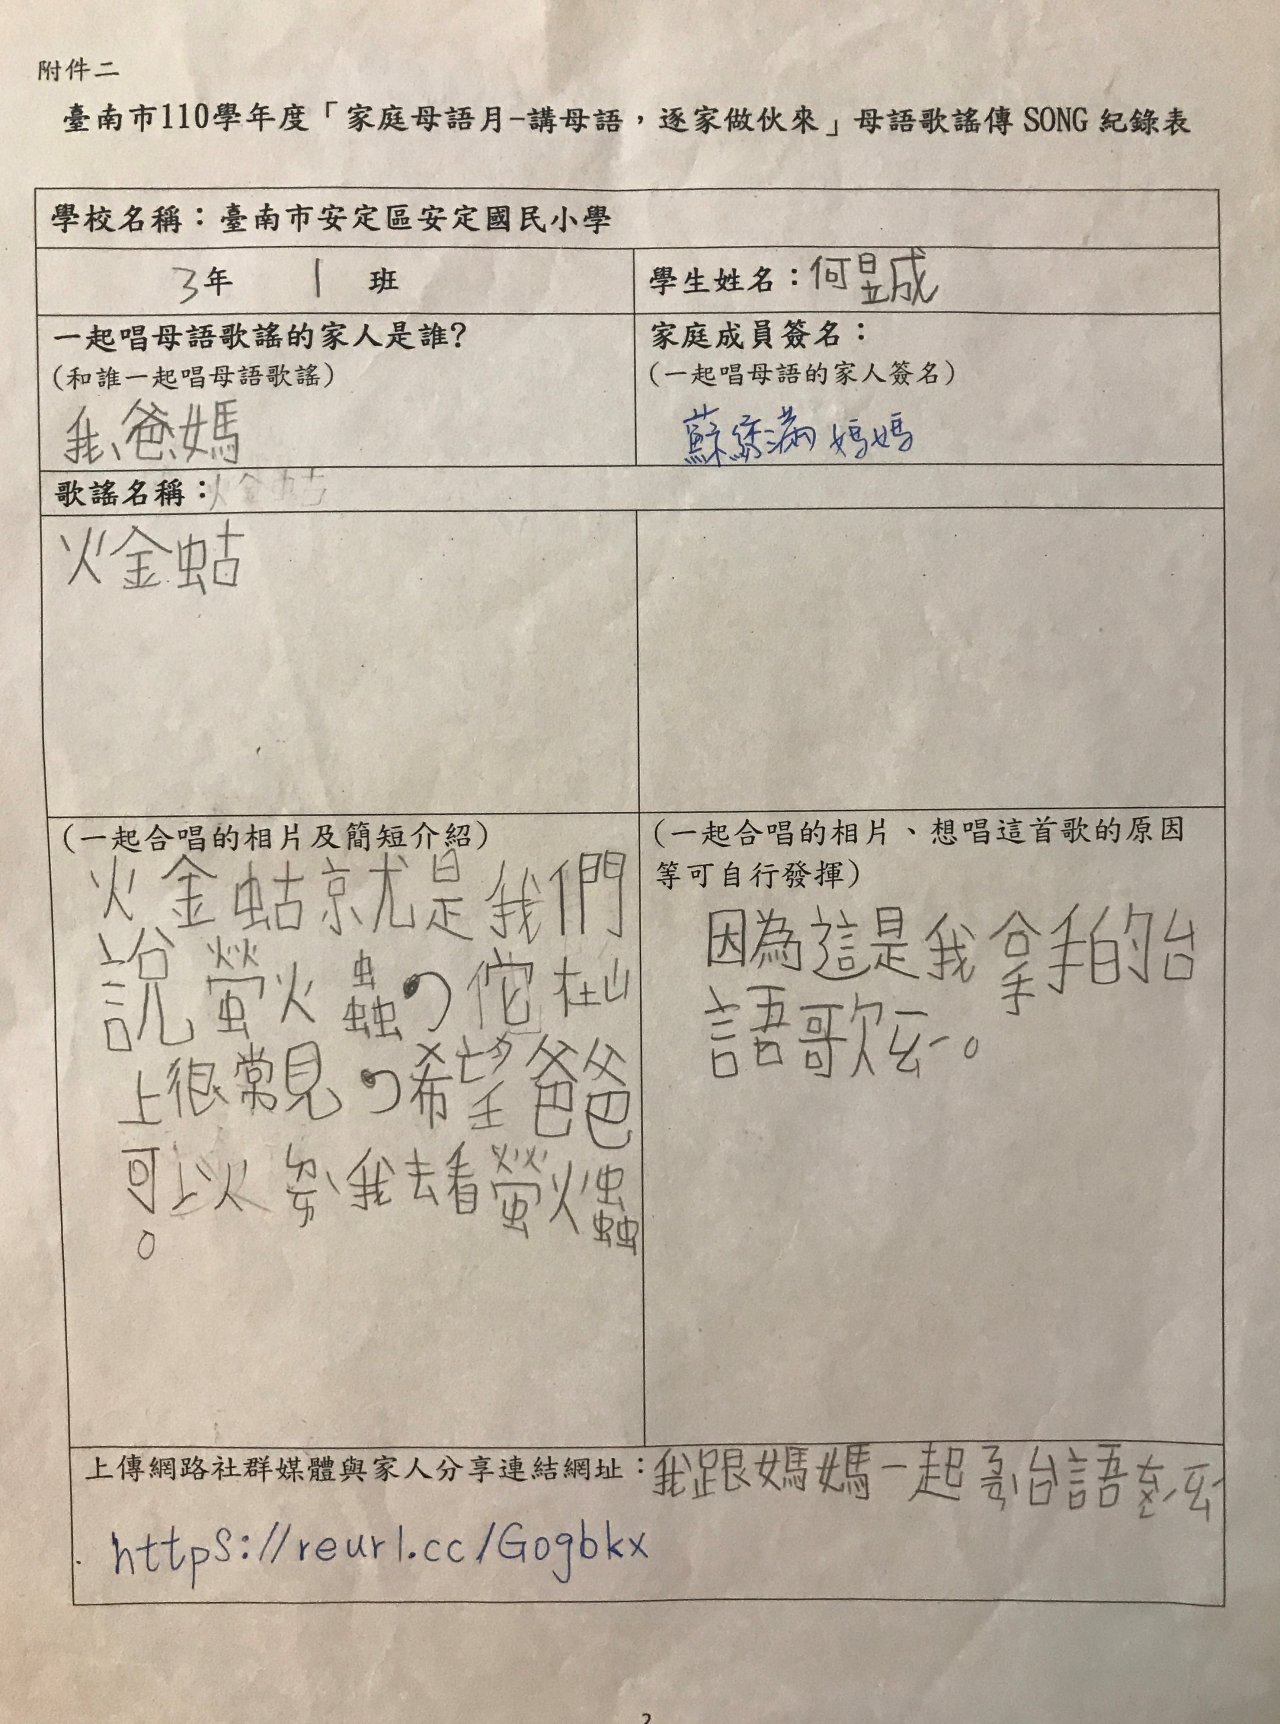 附件二
臺南市110學年度「家庭母語月-講母語，逐家做伙來」母語歌謠傳 SONG 紀錄表
學校名稱：臺南市安定區安定國民小學
3年 1 班
學生姓名：何昱成
一起唱母語歌謠的家人是誰?
(和誰一起唱母語歌謠)
我、爸、媽
家庭成員簽名：
(一起唱母語的家人簽名)
蘇綉滿 媽媽
歌謠名稱：火金蛄
火金蛄
(一起合唱的相片及簡短介紹)
火金蛄就是我們
說螢火蟲，他在山
上很常見，希望爸爸
可以ㄉㄞˋ我去看螢火蟲
。
(一起合唱的相片、想唱這首歌的原因
等可自行發揮)
因為這是我拿手的台
語歌
上傳網路社群媒體與家人分享連結網址：我跟媽媽一起 台語
https://reurl.cc/Gogbkx
2